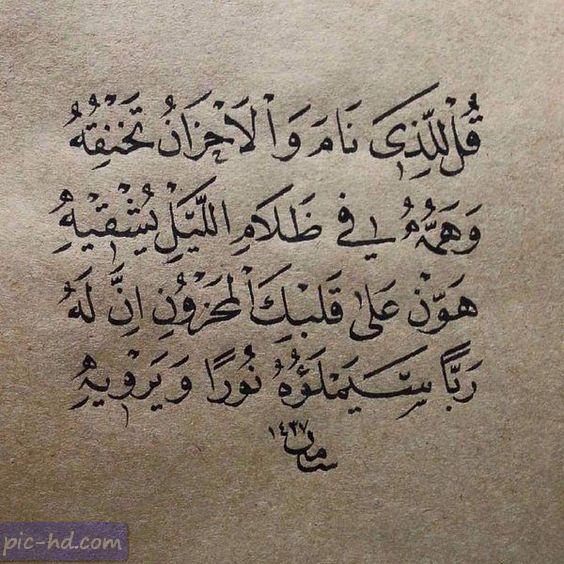 قُلْ لِلَّذِي نَامَ وَالْأَحْزَانُ تَخْنُقُهُ
وَهَمُّهُ فِي ظَلَامِ اللَّيْلِ يُشْقِيْهِ
هَوِّنْ عَلَى قَلْبِكَ الْمَحْزُوْنِ إِنَّ لَهُ
رَبًّا سَيَمْلَؤُهُ نُورًا وَيَرْوِيهِ
سامان ١٤٣٧
pic-hd.com